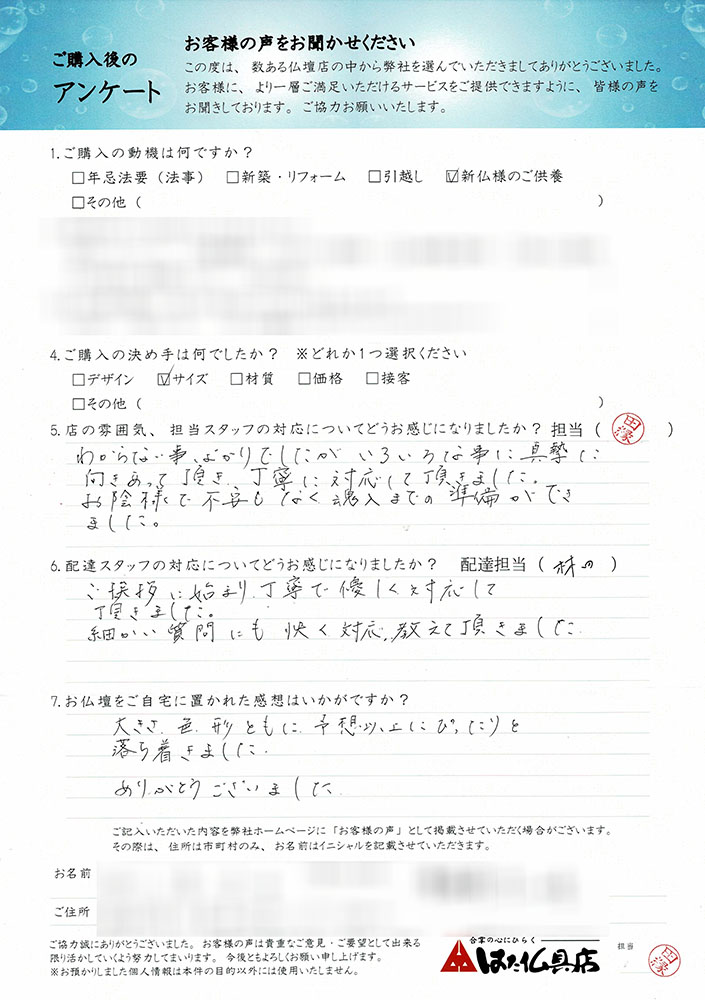 ご購入後の
アンケート
お客様の声をお聞かせください
この度は、数ある仏壇店の中から弊社を選んでいただきましてありがとうございました。
お客様に、より一層ご満足いただけるサービスをご提供できますように、皆様の声を
お聞きしております。ご協力お願いいたします。
1.ご購入の動機は何ですか？
□年忌法要（法事） □新築・リフォーム □引越し ☑新仏様のご供養
□その他（ ）
4.ご購入の決め手は何でしたか？ ※どれか1つ選択ください
□デザイン ☑サイズ □材質 □価格 □接客
□その他（ ）
5.店の雰囲気、担当スタッフの対応についてどうお感じになりましたか？ 担当（ ）
わからない事ばかりでしたが いろいろな事に真摯に
向きあって頂き、丁寧に対応して頂きました。
お陰様で不安もなく魂入までの準備ができ
ました。
6.配達スタッフの対応についてどうお感じになりましたか？ 配達担当（ ）
ご挨拶に始まり、丁寧で優しく対応して
頂きました。
細かい質問にも快く対応、教えて頂きました
7.お仏壇をご自宅に置かれた感想はいかがですか？
大きさ、色、形ともに予想以上にぴったりと
落ち着きました。
ありがとうございました
ご記入いただいた内容を弊社ホームページに「お客様の声」として掲載させていただく場合がございます。
その際は、住所は市町村のみ、お名前はイニシャルを記載させていただきます。
お名前
ご住所
ご協力誠にありがとうございました。お客様の声は貴重なご意見・ご要望として出来る
限り活かしていくよう努力してまいります。今後ともよろしくお願い申し上げます。
※お預かりしました個人情報は本件の目的以外には使用いたしません。
合掌の心にひらく
はた仏具店
担当